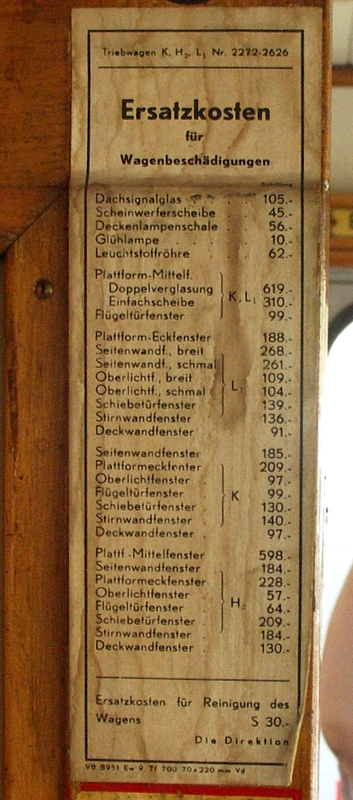 Triebwagen K, H₂, L₁ Nr. 2272-2626
Ersatzkosten
für
Wagenbeschädigungen
Schilling
Dachsignalglas 105.-
Scheinwerferscheibe 45.-
Deckenlampenschale 56.-
Glühlampe 10.-
Leuchtstoffröhre 62.-
Plattform-Mittelf.
Doppelverglasung 619.-
Einfachscheibe K, L₁ 310.-
Flügeltürfenster 99.-
Plattform-Eckfenster 188.-
Seitenwandf., breit 268.-
Seitenwandf., schmal 261.-
Oberlichtf., breit L₁ 109.-
Oberlichtf., schmal 104.-
Schiebetürfenster 139.-
Stirnwandfenster 136.-
Deckwandfenster 91.-
Seitenwandfenster 185.-
Plattformeckfenter 209.-
Oberlichtfenster 97.-
Flügeltürfenster K 99.-
Schiebetürfenster 130.-
Stirnwandfenster 140.-
Deckwandfenster 97.-
Plattf.-Mittelfenster 598.-
Seitenwandfenster 184.-
Plattformeckfenster 228.-
Oberlichtfenster 57.-
Flügeltürfenster H₂ 64.-
Schiebetürfenster 209.-
Stirnwandfenster 184.-
Deckwandfenster 130.-
Ersatzkosten für Reinigung des
Wagens S 30.-
Die Direktion
VB 8951 Ew 9 71 700 70x220 mm Vd